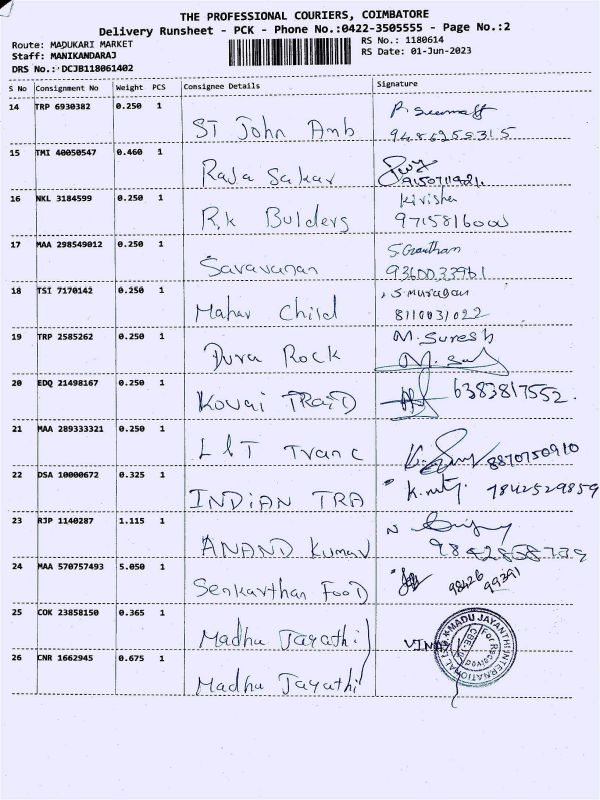 THE PROFESSIONAL COURIERS, COIMBATORE
Delivery Runsheet - PCK - Phone No.:0422-3505555 - Page No.:2
Route: MADUKARI MARKET RS No.: 1180614
Staff: MANIKANDARAJ RS Date: 01-Jun-2023
DRS No.: DCJB118061402
S No Consignment No Weight PCS Consignee Details Signature
14 TRP 6930382 0.250 1
ST John Amb 9486255315
15 TMI 40050547 0.460 1
Raja Sakar 9150711921
16 NKL 3184599 0.250 1 Kirisha
R.K Bulders 9715816000
17 MAA 298549012 0.250 1 S.Gowthan
Saravanan 9360033961
18 TSI 7170142 0.250 1 S.murugan
Mahar Child 8110031022
19 TRP 2585262 0.250 1 M.Suresh
Dura Rock
20 EDQ 21498167 0.250 1
Kovai TRaiD 6383817552.
21 MAA 289333321 0.250 1
L&T Tranc 8870750910
22 DSA 10000672 0.325 1
INDIAN TRA 7842529859
23 RJP 1140287 1.115 1
ANAND Kumar 9842868739
24 MAA 570757493 5.050 1
Senkarthan FooD 98426 99391
25 COK 23858150 0.365 1
Madhu Jayathi
26 CNR 1662945 0.675 1
Madhu Jayathi